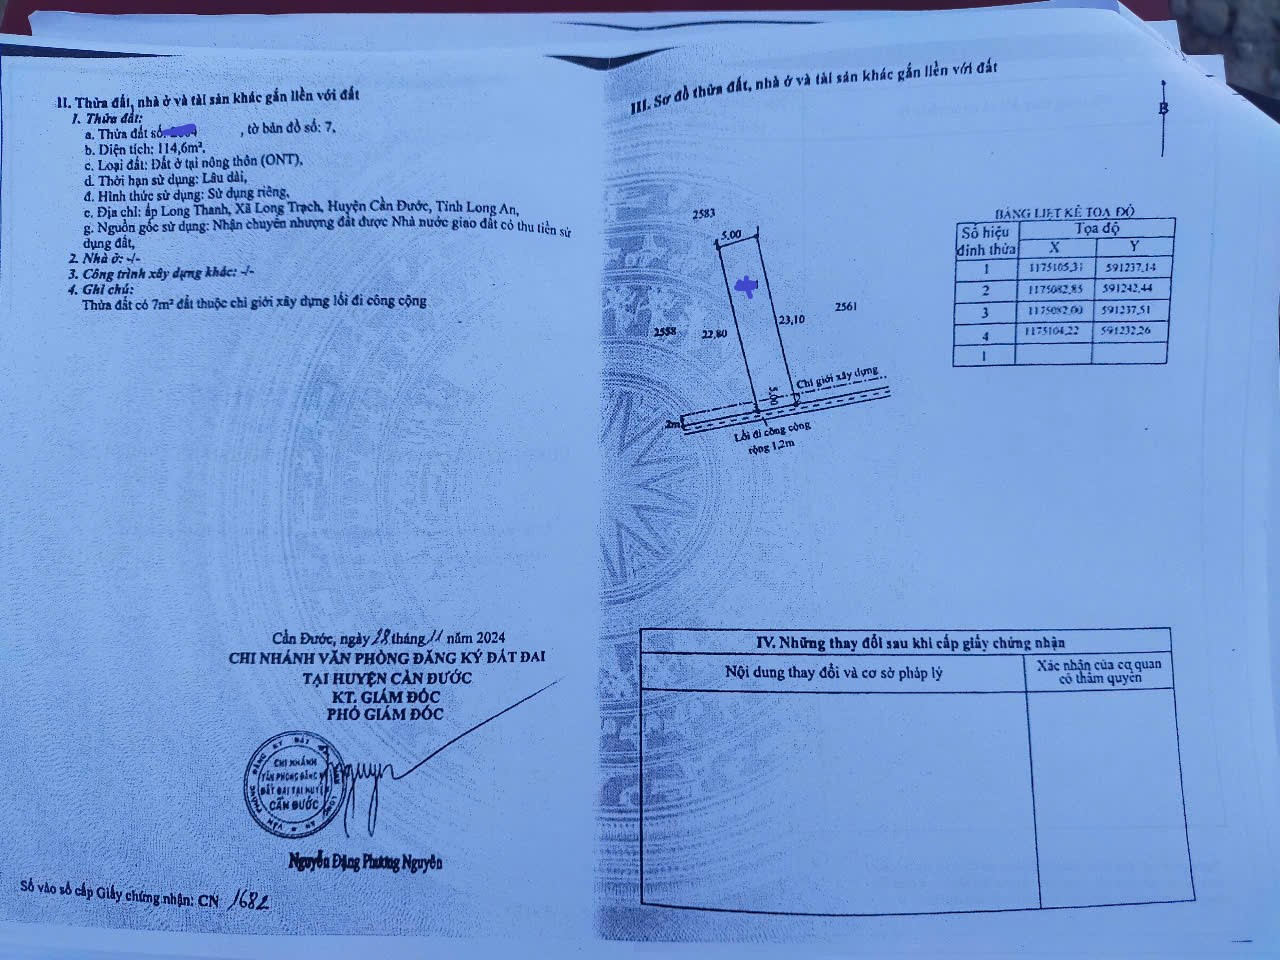 II. Thửa đất, nhà ở và tài sản khác gắn liền với đất
1. Thửa đất:
a. Thửa đất số: , tờ bản đồ số: 7,
b. Diện tích: 114,6m².
c. Loại đất: Đất ở tại nông thôn (ONT),
d. Thời hạn sử dụng: Lâu dài,
đ. Hình thức sử dụng: Sử dụng riêng,
e. Địa chỉ: ấp Long Thanh, Xã Long Trạch, Huyện Cần Đước, Tỉnh Long An,
g. Nguồn gốc sử dụng: Nhận chuyển nhượng đất được Nhà nước giao đất có thu tiền sử
dụng đất,
2. Nhà ở: -/-
3. Công trình xây dựng khác: -/-
4. Ghi chú:
Thửa đất có 7m² đất thuộc chỉ giới xây dựng lối đi công cộng
Cần Đước, ngày 28 tháng 11 năm 2024
CHI NHÁNH VĂN PHÒNG ĐĂNG KÝ ĐẤT ĐAI
TẠI HUYỆN CẦN ĐƯỚC
KT. GIÁM ĐỐC
PHÓ GIÁM ĐỐC
CHI NHÁNH
VĂN PHÒNG ĐĂNG KÝ
ĐẤT ĐAI TẠI HUYỆN
CẦN ĐƯỚC
Nguyễn Đặng Phương Nguyên
Số vào sổ cấp Giấy chứng nhận: CN 1682
III. Sơ đồ thửa đất, nhà ở và tài sản khác gắn liền với đất
B
2583
5.00
2561
2558
22,80
23,10
Chỉ giới xây dựng
5.00
2m
Lối đi công cộng
rộng 1,2m
BẢNG LIỆT KÊ TỌA ĐỘ
Số hiệu đỉnh thửa Tọa độ
X Y
1 1175105,31 591237,14
2 1175082,85 591242,44
3 1175082,00 591237,51
4 1175104,22 591232,26
1
IV. Những thay đổi sau khi cấp giấy chứng nhận
Nội dung thay đổi và cơ sở pháp lý
Xác nhận của cơ quan
có thẩm quyền